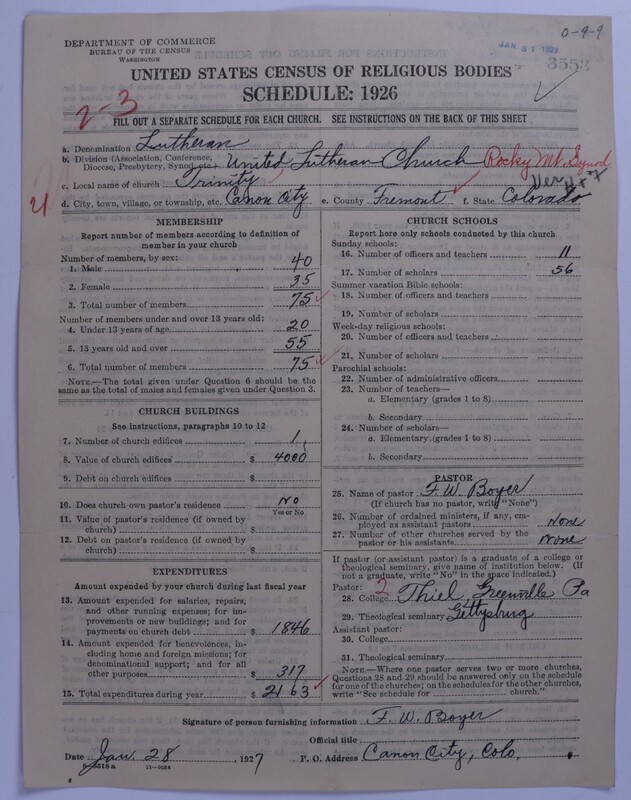 DEPARTMENT OF COMMERCE
BUREAU OF THE CENSUS
WASHINGTON
0-9-9
JAN 31 1927
3553
UNITED STATES CENSUS OF RELIGIOUS BODIES
SCHEDULE: 1926
2-3
FILL OUT A SEPARATE SCHEDULE FOR EACH CHURCH. SEE INSTRUCTIONS ON THE BACK OF THIS SHEET
a. Denomination Lutheran
b. Division (Association, Conference, Diocese, Presbytery, Synod, etc.) United Lutheran Church Rocky Mt. Synod
c. Local name of church Trinity
d. City, town, village, or township, etc. Canon City e. County Fremont f. State Colorado
MEMBERSHIP
Report number of members according to definition of member in your church
Number of members, by sex:
1. Male 40
2. Female 35
3. Total number of members 75
Number of members under and over 13 years old:
4. Under 13 years of age 20
5. 13 years old and over 55
6. Total number of members 75
NOTE.—The total given under Question 6 should be the same as the total of males and females given under Question 3.
CHURCH BUILDINGS
See instructions, paragraphs 10 to 12
7. Number of church edifices 1
8. Value of church edifices $ 4000
9. Debt on church edifices $
10. Does church own pastor's residence? No
Yes or No
11. Value of pastor's residence (if owned by church) $
12. Debt on pastor's residence (if owned by church) $
EXPENDITURES
Amount expended by your church during last fiscal year
13. Amount expended for salaries, repairs, and other running expenses; for improvements or new buildings; and for payments on church debt $ 1846
14. Amount expended for benevolences, including home and foreign missions; for denominational support; and for all other purposes $ 317
15. Total expenditures during year $ 2163
CHURCH SCHOOLS
Report here only schools conducted by this church
Sunday schools:
16. Number of officers and teachers 11
17. Number of scholars 56
Summer vacation Bible schools:
18. Number of officers and teachers
19. Number of scholars
Week-day religious schools:
20. Number of officers and teachers
21. Number of scholars
Parochial schools:
22. Number of administrative officers
23. Number of teachers—
a. Elementary (grades 1 to 8)
b. Secondary
24. Number of scholars—
a. Elementary (grades 1 to 8)
b. Secondary
PASTOR
25. Name of pastor F. W. Boyer
(If church has no pastor, write "None")
26. Number of ordained ministers, if any, employed as assistant pastors None
27. Number of other churches served by the pastor or his assistants None
If pastor (or assistant pastor) is a graduate of a college or theological seminary, give name of institution below. (If not a graduate, write "No" in the space indicated.)
Pastor: 2
28. College Thiel, Greenville Pa
29. Theological seminary Gettysburg
Assistant pastor:
30. College
31. Theological seminary
NOTE.—Where one pastor serves two or more churches, Questions 28 and 29 should be answered only on the schedule for one of the churches; on the schedules for the other churches, write "See schedule for church."
Signature of person furnishing information F. W. Boyer
Official title
Date Jan. 28, 1927 P. O. Address Canon City, Colo.
8-5518a 11-9024